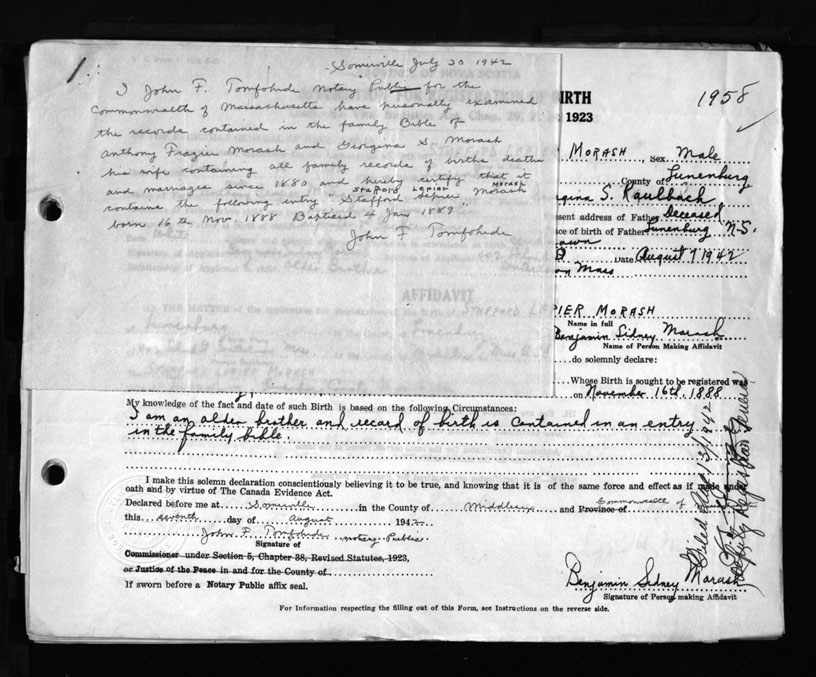 1
Somerville July 20 1942
I John F. Tomfohide Notary Public for the
Commonwealth of Massachusetts have personally examined
the records contained in the family Bible of
Anthony Frazier Morash and Georgina S. Morash
his wife containing all family records of births deaths
and marriages since 1880 and hereby certify that it
contains the following entry "Stafford Lepier Morash
Stafford Lepier Morash
born 16th Nov. 1888 Baptised 4 Jan 1889"
John F Tomfohide
BIRTH
1923
1958
MORASH, Sex Male
County of Lunenburg
Georgina S. Kaulbach
present address of Father Deceased
place of birth of Father Lunenburg N-S.
Date August 7 1942
Mass
Older Brother
AFFIDAVIT
IN THE MATTER of the application for
STAFFORD LEPIER MORASH
Name in full
Benjamin Sidney Morash
Name of Person Making Affidavit
do solemnly declare:
Whose Birth is sought to be registered was
on November 16th, 1888
My knowledge of the fact and date of such Birth is based on the following Circumstances:
I am an older brother and record of birth is contained in an entry
in the family bible.
I make this solemn declaration conscientiously believing it to be true, and knowing that it is of the same force and effect as if made under
oath and by virtue of The Canada Evidence Act.
Declared before me at Somerville in the County of Middlesex and Province of Commonwealth of
this seventh day of August 1942
John F. Tomfohide notary Public
Signature of
Commissioner under Section 5, Chapter 38, Revised Statutes, 1923,
or Justice of the Peace in and for the County of
If sworn before a Notary Public affix seal.
Benjamin Sidney Morash
Signature of Person making Affidavit
For Information respecting the filling out of this Form, see Instructions on the reverse side.
Deputy Registrar General